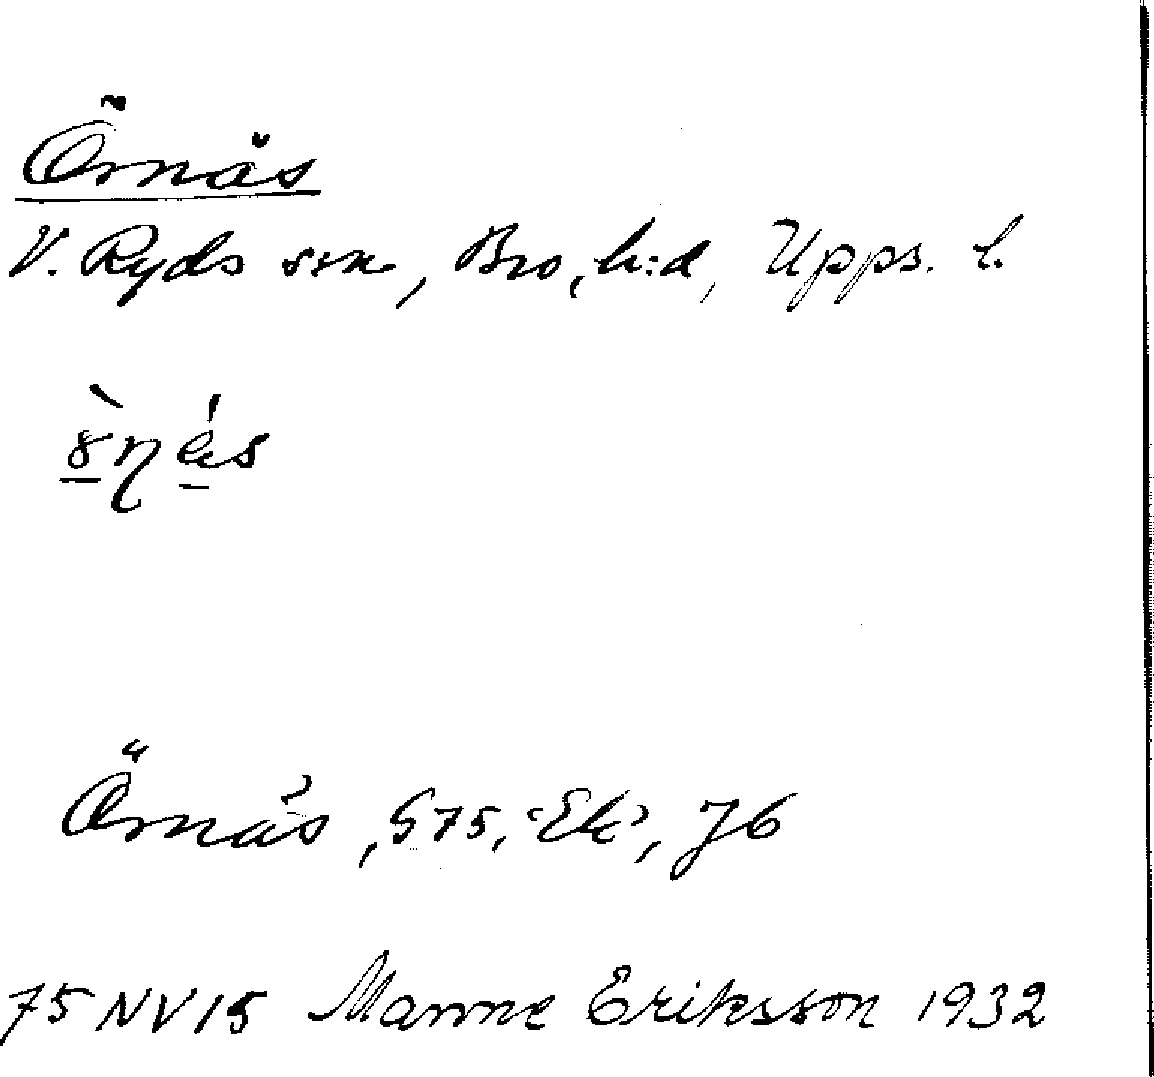 Örnäs
V. Ryds sn, Bro, h:d, Upps. l.
Örnäs, G75, Ek, J6
75 NV 15 Manne Eriksson 1932